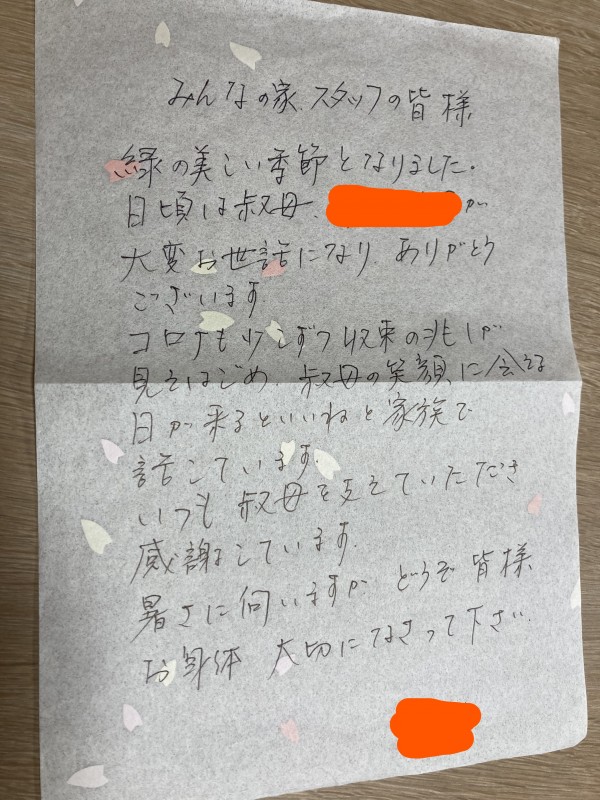 みんなの家、スタッフの皆様
緑の美しい季節となりました。
日頃は叔母、が
大変お世話になり、ありがとう
ございます
コロナも少しずつ収束の兆しが
見えはじめ、叔母の笑顔に会える
日が来るといいねと家族で
話しています。
いつも叔母を支えていただき
感謝しています。
暑さに向いますが、どうぞ皆様
お身体 大切になさって下さい。